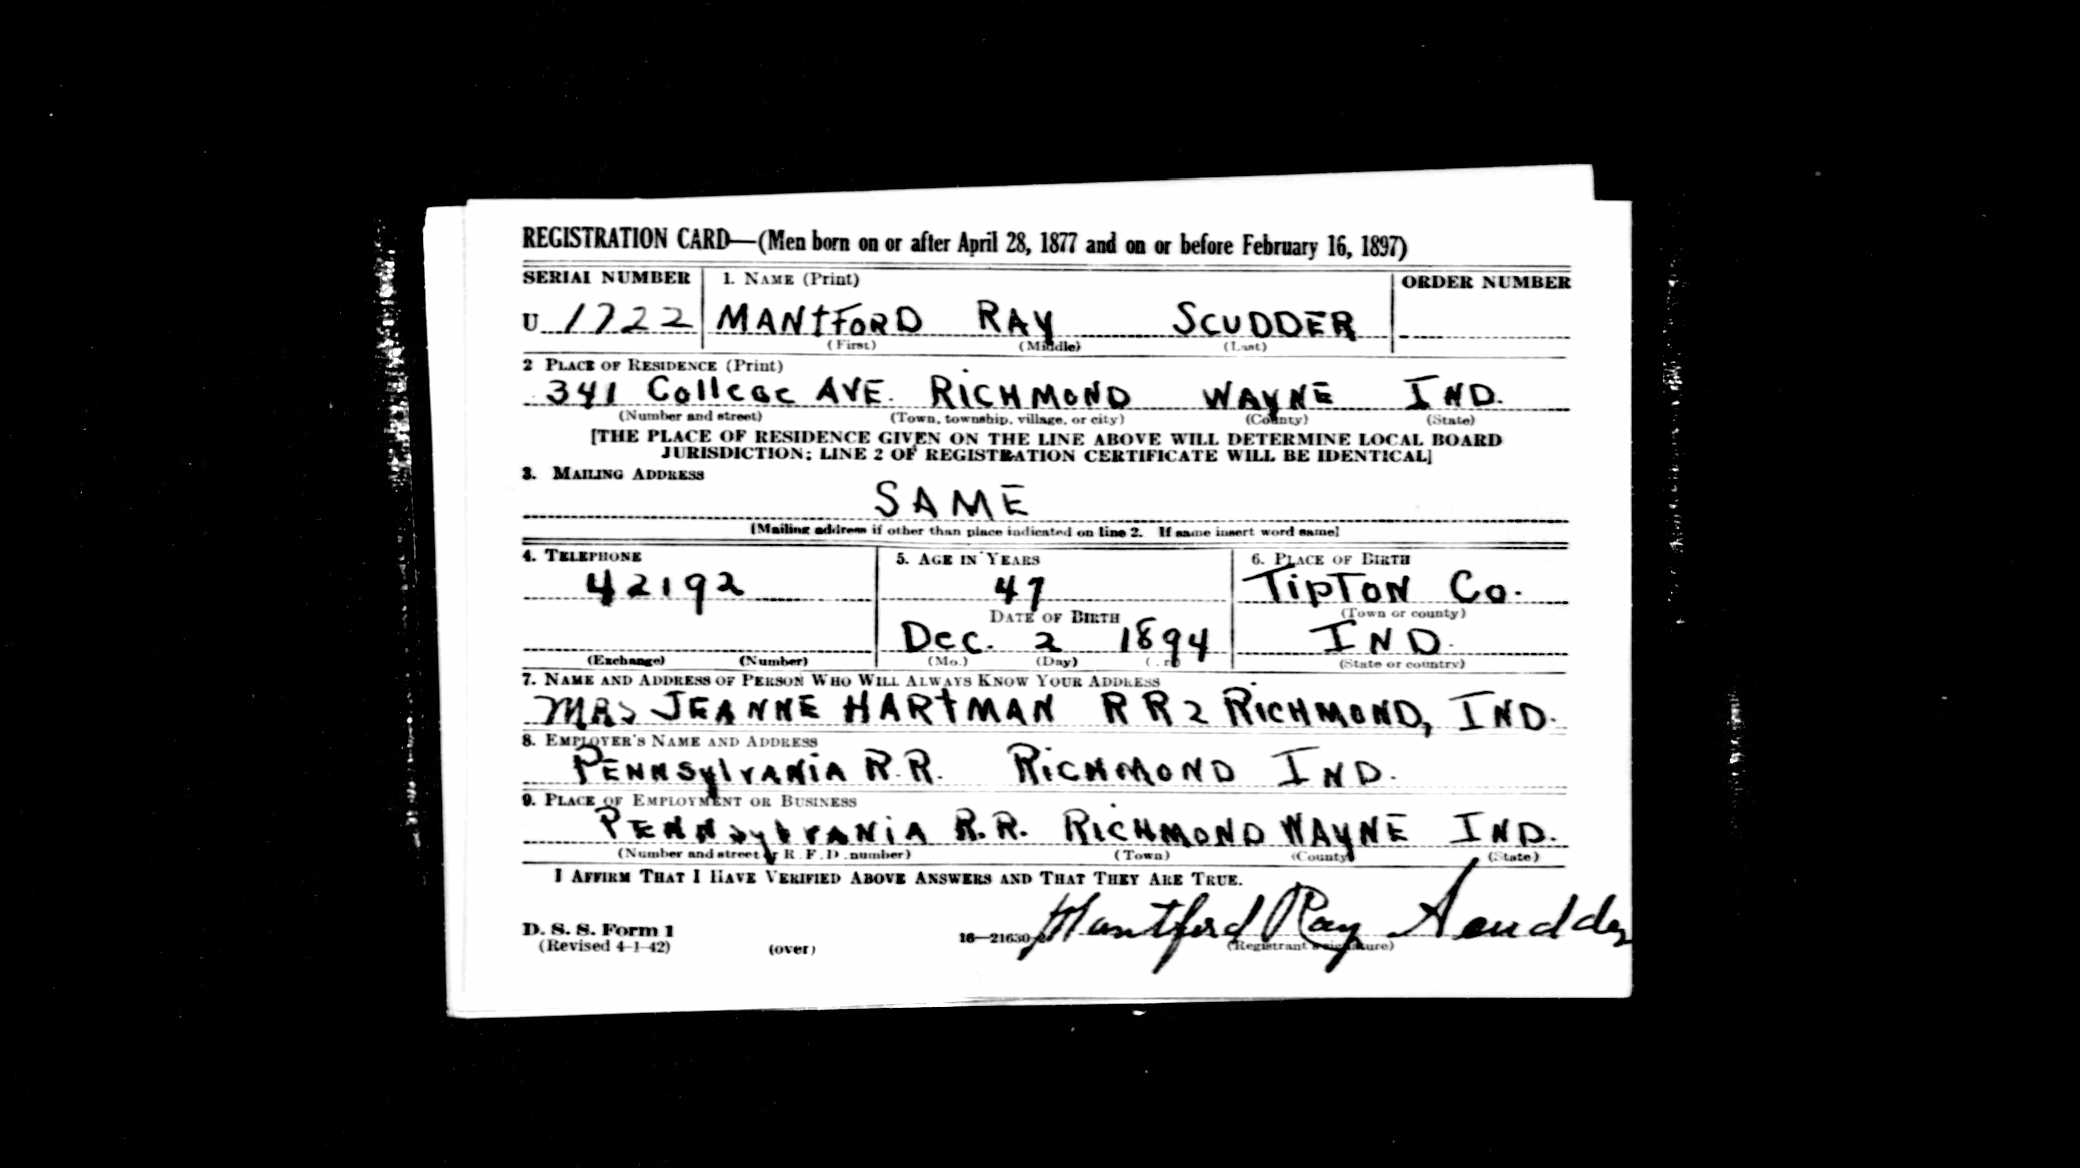 REGISTRATION CARD—(Men born on or after April 28, 1877 and on or before February 16, 1897)
SERIAL NUMBER 1. NAME (Print) ORDER NUMBER
U 1722 MANTFORD RAY SCUDDER
(First) (Middle) (Last)
2 PLACE OF RESIDENCE (Print)
341 College AVE. RICHMOND WAYNE IND.
(Number and street) (Town, township, village, or city) (County) (State)
[THE PLACE OF RESIDENCE GIVEN ON THE LINE ABOVE WILL DETERMINE LOCAL BOARD
JURISDICTION; LINE 2 OF REGISTRATION CERTIFICATE WILL BE IDENTICAL]
3. MAILING ADDRESS
SAME
[Mailing address if other than place indicated on line 2. If same insert word same]
4. TELEPHONE 5. AGE IN YEARS 6. PLACE OF BIRTH
42192 47 TIPTON Co.
DATE OF BIRTH (Town or county)
Dec. 2 1894 IND.
(Exchange) (Number) (Mo.) (Day) (State or country)
7. NAME AND ADDRESS OF PERSON WHO WILL ALWAYS KNOW YOUR ADDRESS
MRS JEANNE HARTMAN R R 2 RICHMOND, IND.
8. EMPLOYER'S NAME AND ADDRESS
PENNSylVANIA R.R. RICHMOND IND.
9. PLACE OF EMPLOYMENT OR BUSINESS
PENNSylVANIA R.R. RICHMOND WAYNE IND.
(Number and street or R. F. D. number) (Town) (County) (State)
I AFFIRM THAT I HAVE VERIFIED ABOVE ANSWERS AND THAT THEY ARE TRUE.
Mantford Ray Scudder
D. S. S. Form 1
(Revised 4-1-42) (over) 16—21630-2 (Registrant's signature)